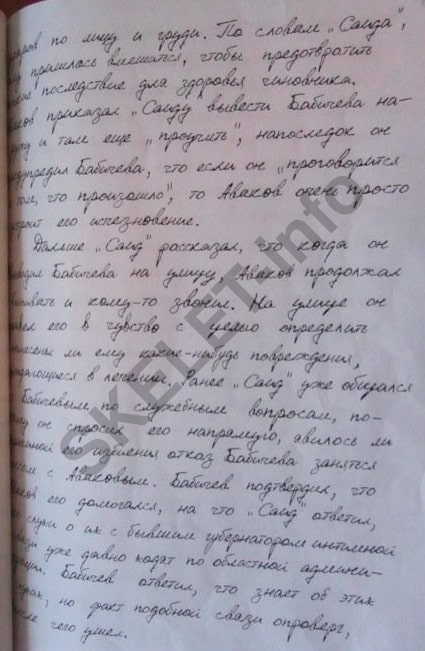 ударов по лицу и груди. По словам „Саида",
пришлось вмешаться, чтобы предотвратить
последствие для здоровья чиновника.
Аваков приказал „Саиду" вывести Бабичева на-
и там еще „проучить", напоследок он
предупредил Бабичева, что если он „проговорится
о том, что произошло", то Аваков очень просто
устроит его исчезновение.
Дальше „Саид" рассказал, что когда он
выводил Бабичева на улицу, Аваков продолжал
и кому-то звонил. На улице он
привел его в чувство с целью определить
нанесены ли ему какие-нибудь повреждения,
нуждающиеся в лечении. Ранее „Саид" уже общался
с Бабичевым по служебным вопросам, по-
этому он спросил его напрямую, авилось ли
причиной его избиения отказ Бабичева заняться
сексом с Аваковым. Бабичев подтвердил, что
Аваков его домогался, на что „Саид" ответил,
что слухи о их с бывшим губернатором интимной
связи уже давно ходят по областной админи-
страции. Бабичев ответил, что знает об этих
слухах, но факт подобной связи опроверг,
после чего ушел.
SKELET-info